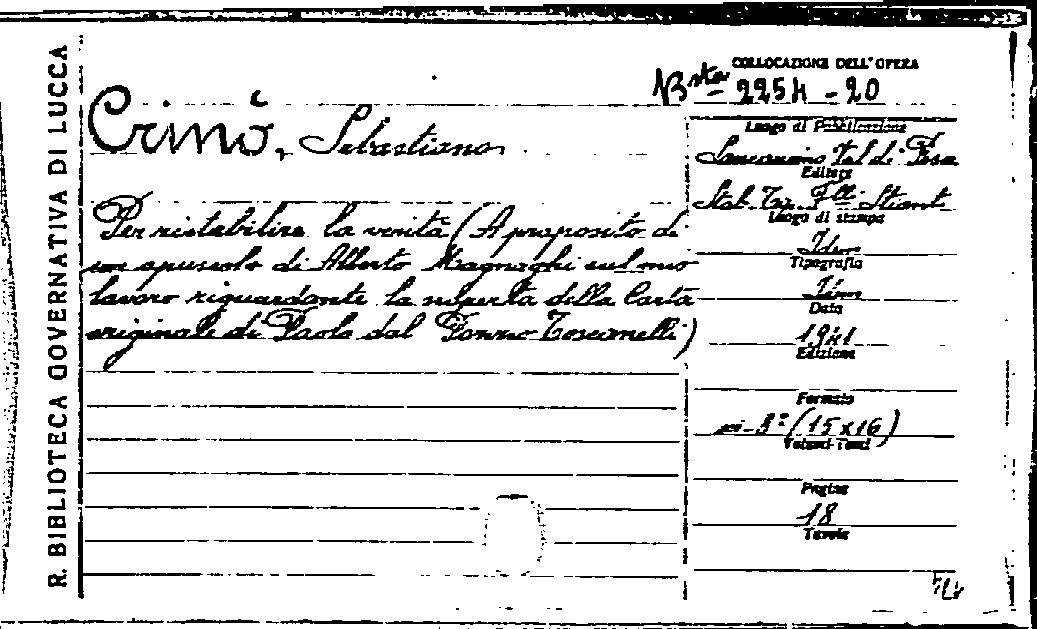 R. BIBLIOTECA GOVERNATIVA DI LUCCA
COLLOCAZIONE DELL'OPERA
Bsta 2254 - 20
Crinò, Sebastiano
Per ristabilire la verità (A proposito di
un opuscolo di Alberto Magnaghi sul mio
lavoro riguardante la scoperta della Carta
originale di Paolo dal Pozzo Toscanelli)
Luogo di Pubblicazione
Sancasciano Val di Pesa
Editore
Stab. Tip. F.lli Stianti
Luogo di stampa
Idem
Tipografia
Idem
Data
1941
Edizione
Formato
in-8° (15x16)
Volumi-Tomi
Pagine
18
Tavole